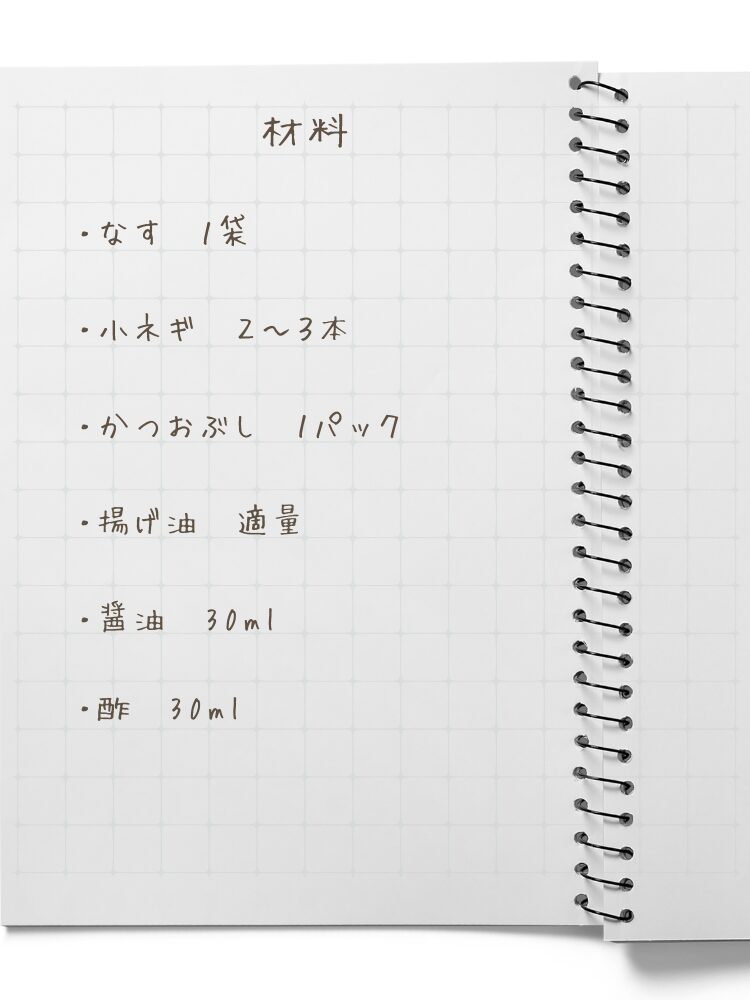 材料
・なす　1袋
・小ネギ　2〜3本
・かつおぶし　1パック
・揚げ油　適量
・醤油　30ml
・酢　30ml